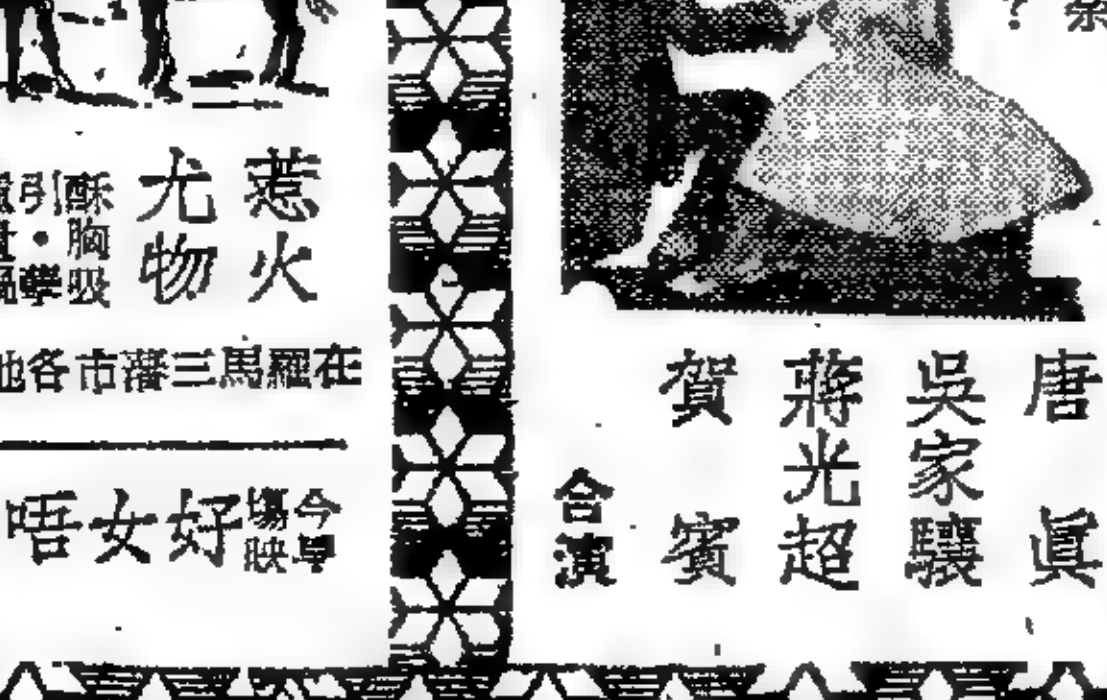 唐眞
吳家驤
蔣光超
賀賓
合演
惹火
尤物
酥胸吸
引•孽
在羅馬三藩市各地
今早
場映
好女唔